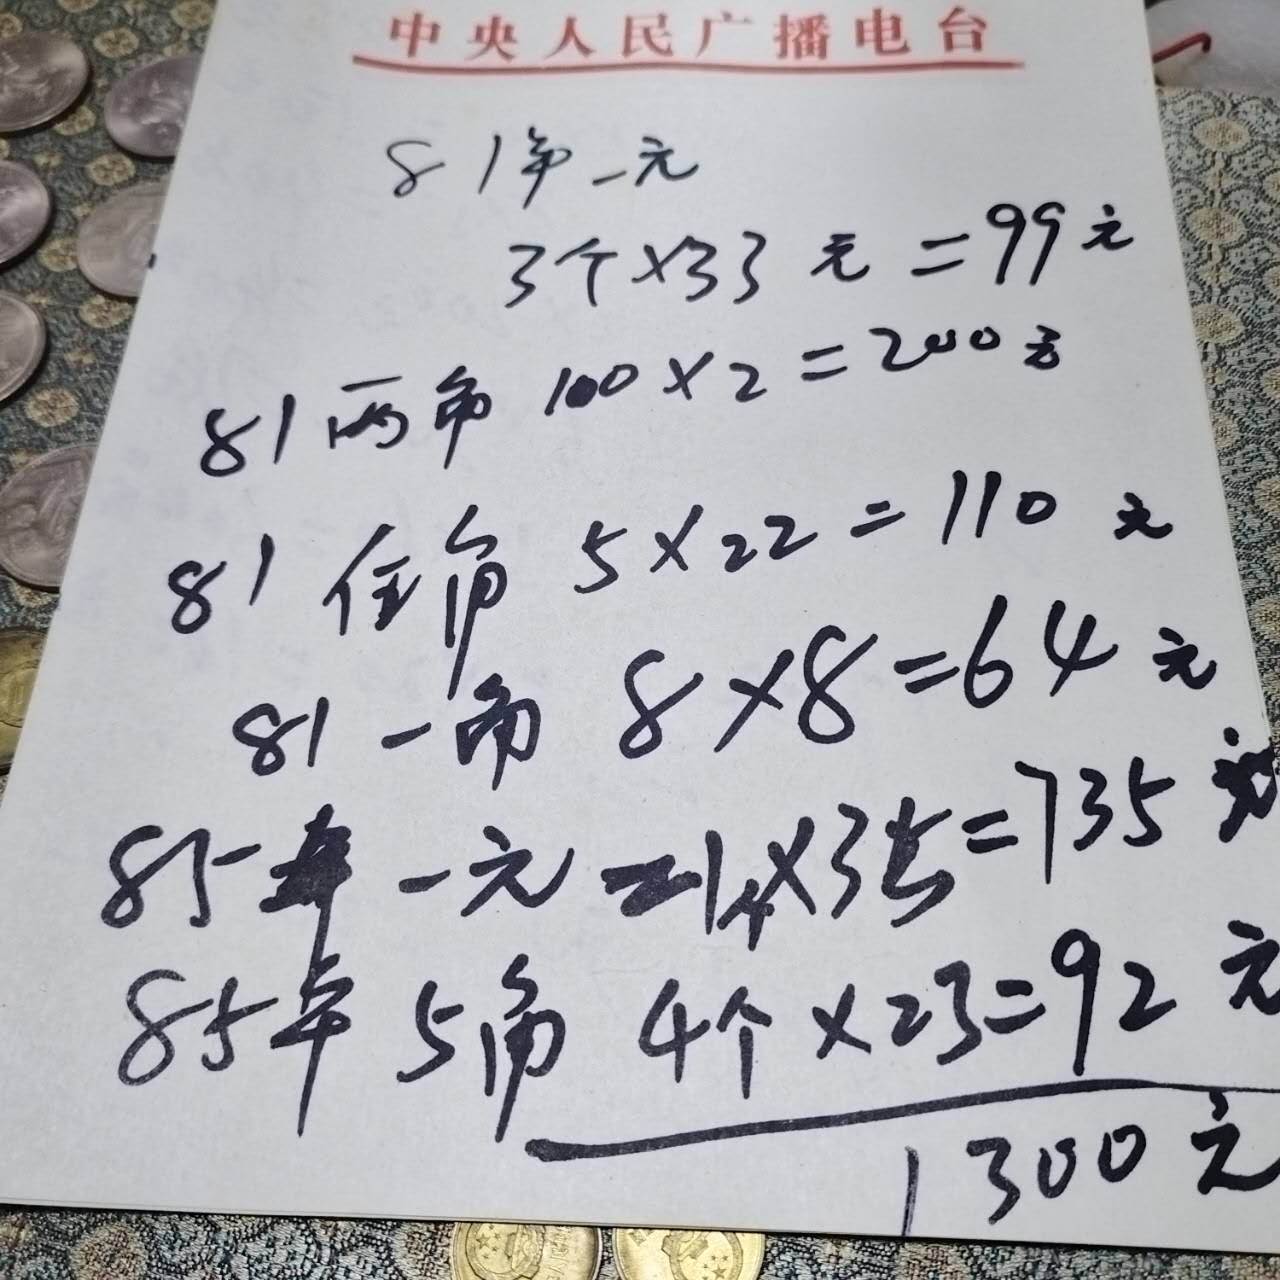 中央人民广播电台
81年一元
3个×33元=99元
81两角100×2=200元
81伍角5×22=110元
81一角8×8=64元
85年一元=21个×35=735元
85年5角4个×23=92元
1300元